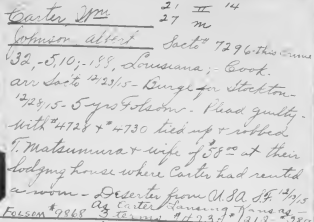 Carter Wm 21 II 14
27 m
Johnson albert Sacto # 7296-this crime
32,-5,10;-188, Louisiana; - Cook.
arr Sacto 12/23/15- Burge for Stockton-
12/28/15- 5-yrs Folsom. Plead guilty.
with #4728 & #4730 tied up & robbed
T. Matsumura & wife of $58.00 at their
lodging house where Carter had rented
a room- Deserter from U.S.A. S.F. 12/9/15
As Carter Lansing Kansas-
FOLSOM #9868 3-terms